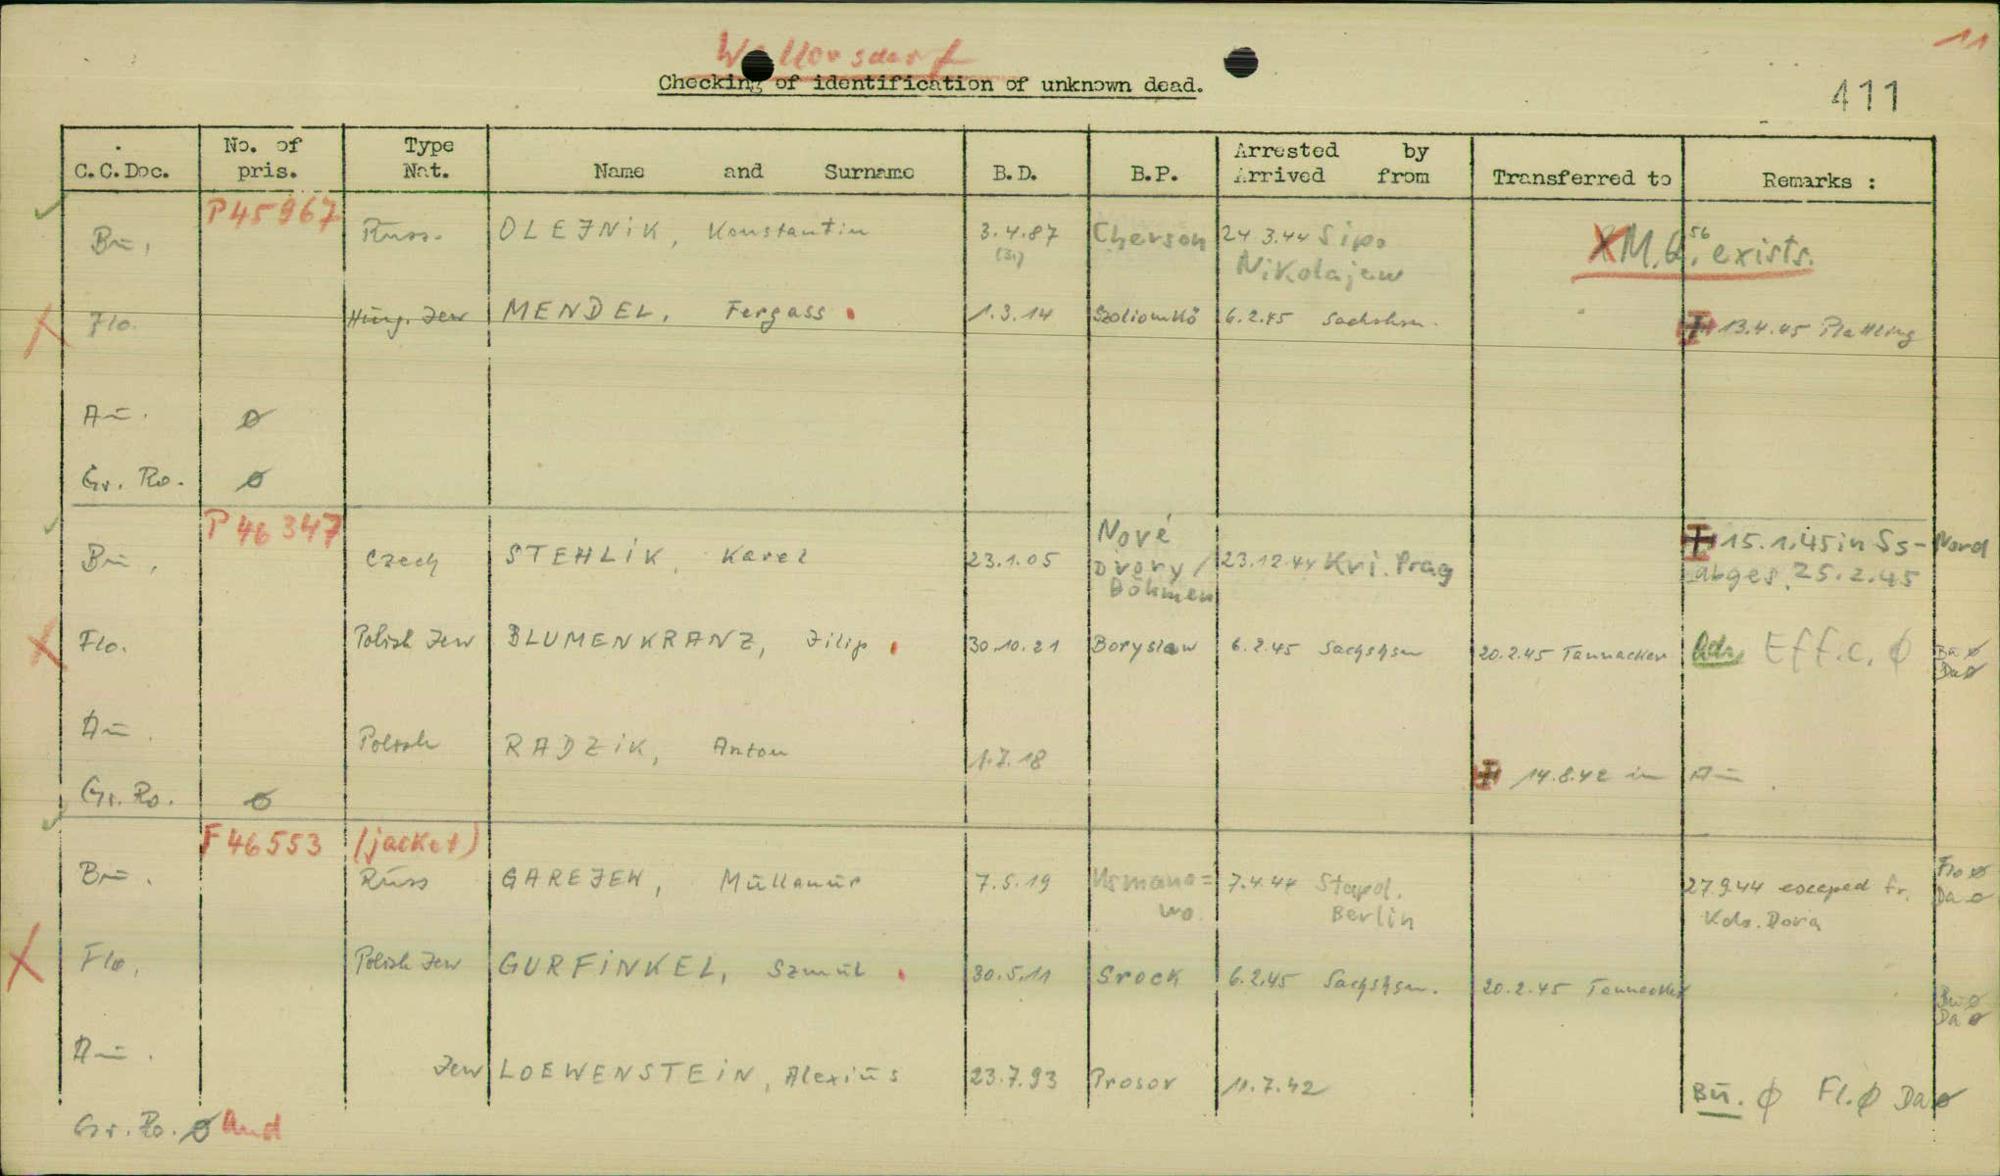 Wallersdorf
11
Checking of identification of unknown dead.
411
C.C.Doc. No. of pris. Type Nat. Name and Surname B.D. B.P. Arrested by Arrived from Transferred to Remarks :
P45967
Bū. Russ. OLEJNiK, Konstantin 3.4.87 Cherson 24.3.44 Sipo Nikolajew XM.G. 56 exists.
Flo. Hūng. Jew MENDEL, Fergass 1.3.14 6.2.45 Sachshsn. 13.4.45 Plattling
Aū. ø
Gr. Ro. ø
P 46 347
Bū. Czech STEHLiK, Karel 23.1.05 Nové Dvory / Böhmen 23.12.44 Kri. Prag 15.1.45 in Ss-Nord
abges. 25.2.45
Flo. Polish Jew BLUMENKRANZ, Filip 30.10.21 Boryslaw 6.2.45 Sachshsn 20.2.45 Tannacker Eff.c. ø Bū ø
Da ø
Aū. Polish RADZiK, Anton 1.7.18 14.8.42 in Aū.
Gr. Ro. ø
F 46553 (jacket)
Bū. Rūss GAREJEW, Mūllanūr 7.5.19 Usmano=
wo. 7.4.44 Stapol. Berlin 27.9.44 escaped fr.
Kdo. Dora Flo ø
Da ø
Flo. Polish Jew GURFiNKEL, Szmūl 30.5.11 Srock 6.2.45 Sachshsn. 20.2.45 Tannacker Bū ø
Da ø
Aū. Jew LOEWENSTEiN, Alexiūs 23.7.93 Prosor 11.7.42 Bū. ø Fl. ø Da ø
Gr. Ro. ø And